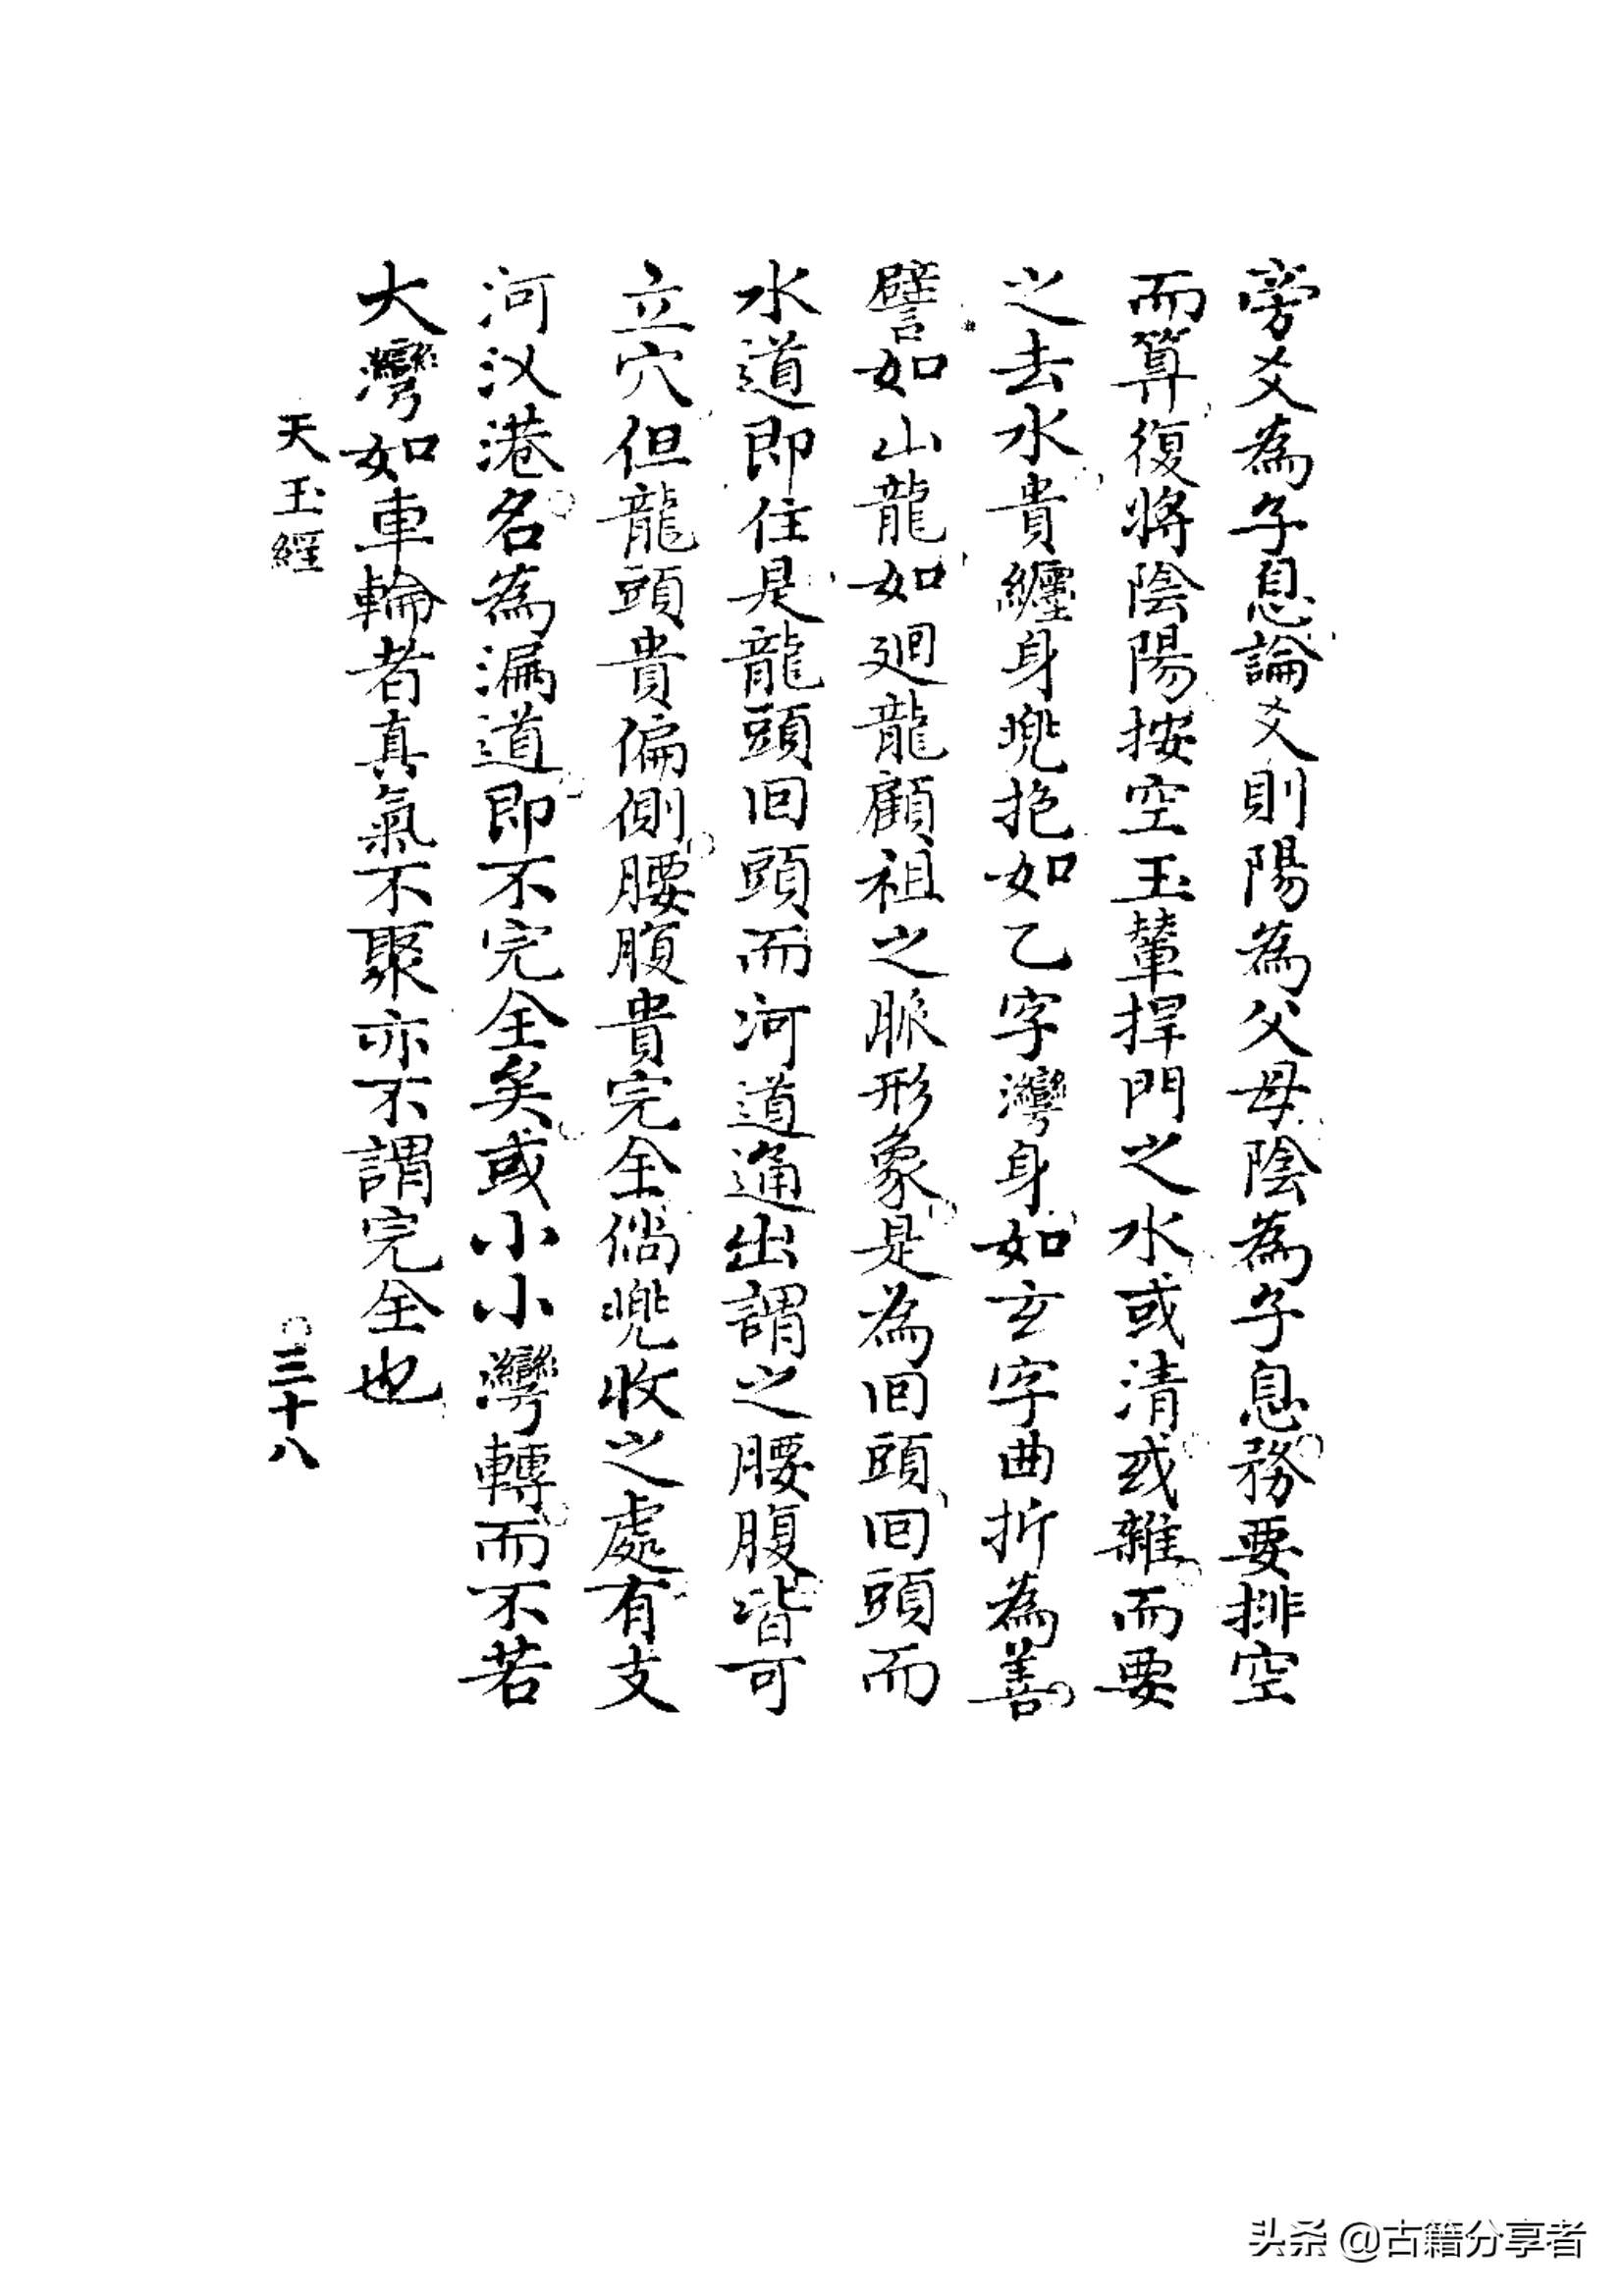 旁爻為子息論爻則陽為父母陰為子息務要排空
而算復將陰陽按空玉輦捍門之水或清或雜而要
之去水貴纏身兜抱如乙字灣身如玄字曲折為善
譬如山龍如廻龍顧祖之脈形象是為回頭回頭而
水道即住是龍頭回頭而河道通出謂之腰腹皆可
立穴但龍頭貴偏側腰腹貴完全倘兜收之處有支
河汊港名為漏道即不完全矣或小小灣轉而不若
大灣如車輪者真氣不聚亦不謂完全也
天玉經
○三十八
头条 @古籍分享者